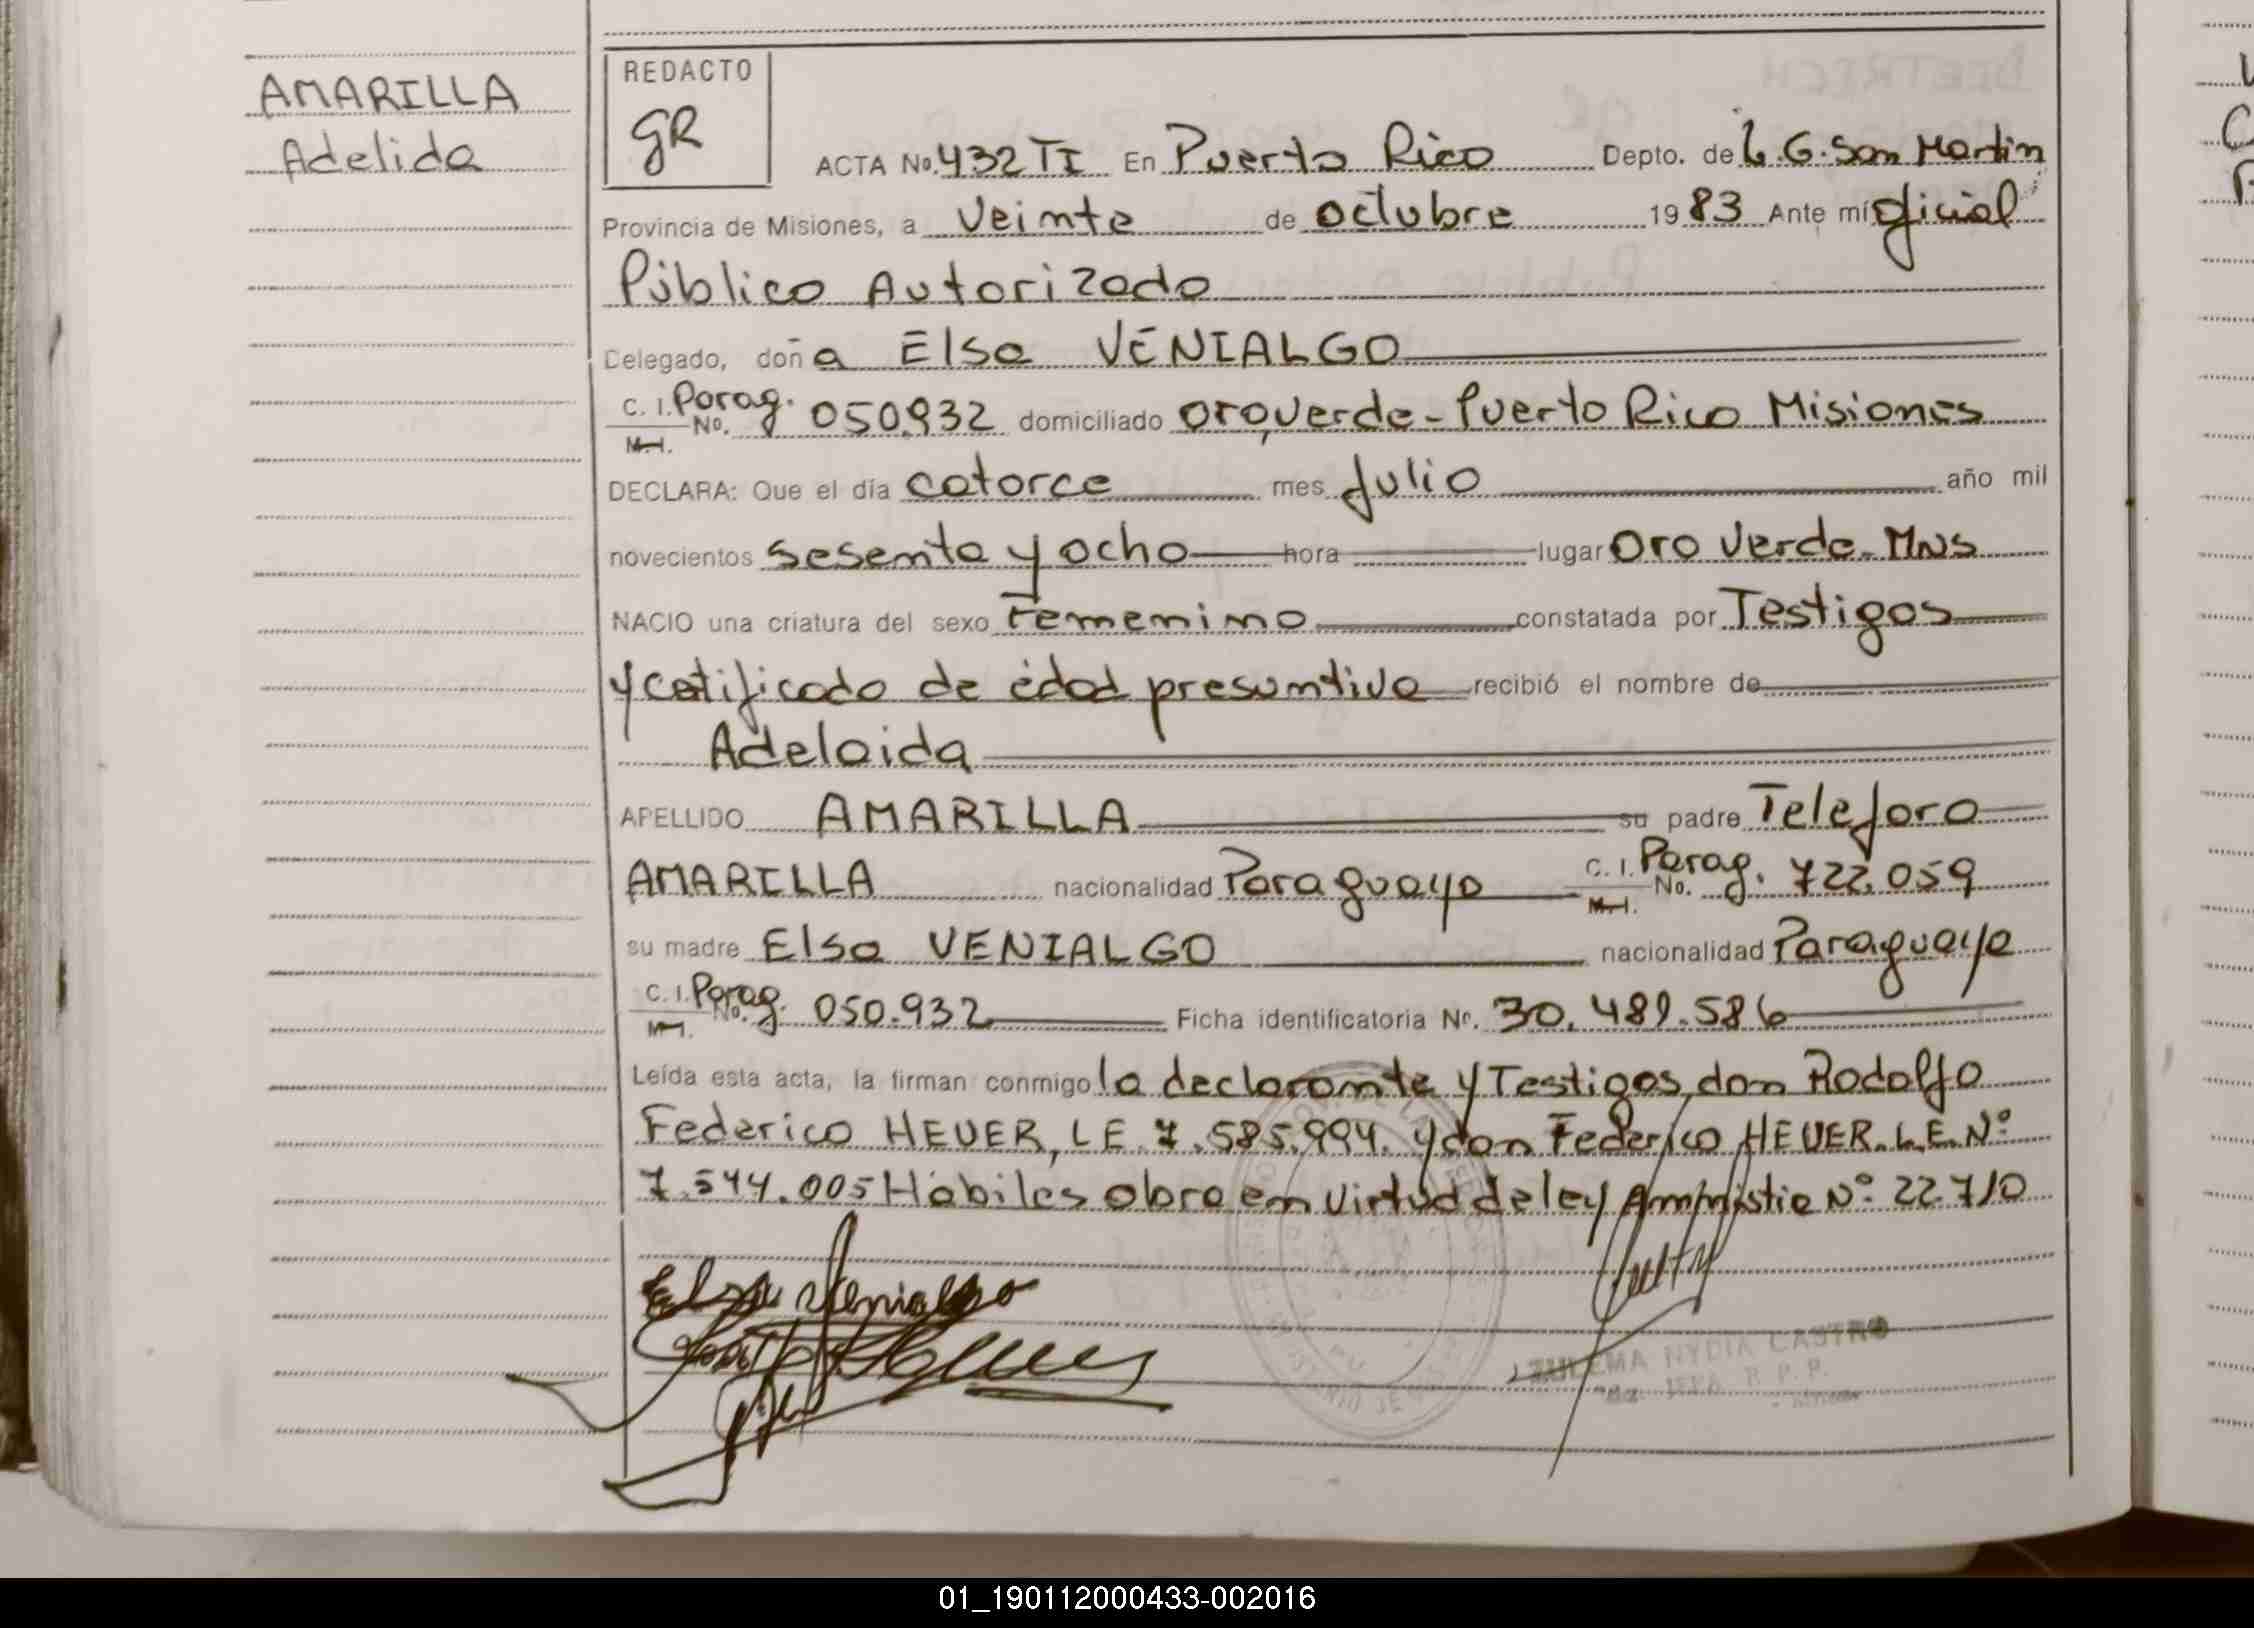 AMARILLA
Adelida
REDACTO
gR
ACTA No. 432 TI En Puerto Rico Depto. de L. G. San Martin
Provincia de Misiones, a Veinte de octubre 1983 Ante mí oficial
Público Autorizado
Delegado, doña Elsa VENIALGO
C. I. Parag.
M. I. No. 050.932 domiciliado oro verde - Puerto Rico Misiones
DECLARA: Que el día catorce mes Julio año mil
novecientos sesenta y ocho hora lugar Oro Verde - MNS
NACIO una criatura del sexo Femenino constatada por Testigos
y cetificado de edad presuntiva recibió el nombre de
Adelaida
APELLIDO AMARILLA su padre Teleforo
AMARILLA nacionalidad Paraguaya C. I. Parag. M. I. No. 722.059
su madre Elsa VENIALGO nacionalidad Paraguaya
C. I. Parag. M. I. No. 050.932 Ficha identificatoria No. 30.489.586
Leída esta acta, la firman conmigo la declarante y Testigos don Rodolfo
Federico HEUER, L E 7.585.994. y don Federico HEUER. L.E. Nº
7.544.005 Habiles obra en virtud de ley Ammistia Nº 22.710
Elsa Venialgo
ZULEMA NYDIA CASTRO
JEFA R. P. P.
01_190112000433-002016